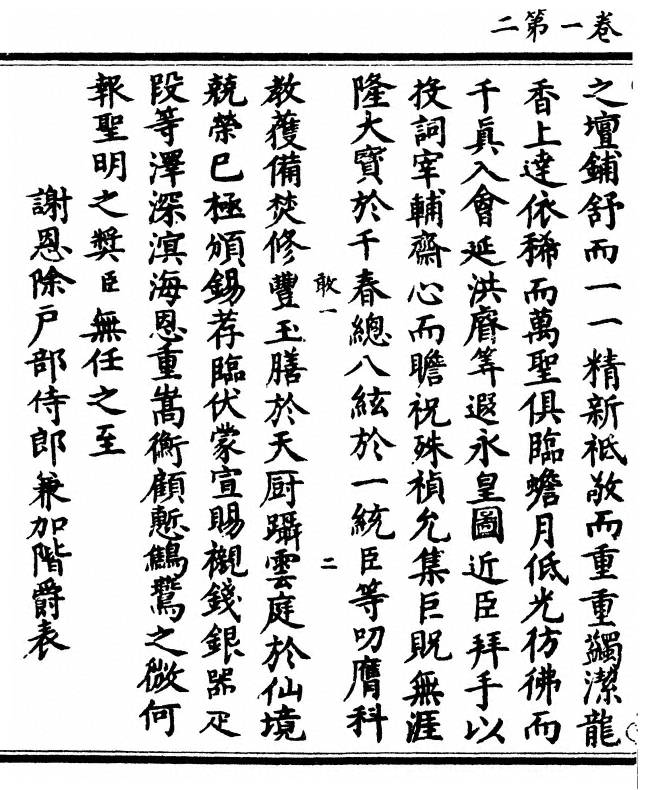 卷一第二
之壇鋪舒而一一精新祗敬而重重蠲潔龍
香上達依稀而萬聖俱臨蟾月低光彷彿而
千眞入會延洪齎筭遐永皇圖近臣拜手以
投詞宰輔齋心而瞻祝殊禎允集巨貺無涯
隆大寶於千春總八紘於一統臣等叨膺科
敢一
二
教獲備焚修豐玉膳於天厨躡雲庭於仙境
兢榮已極頒錫荐臨伏蒙宣賜襯錢銀器疋
段等澤深溟海恩重嵩衡顧慙鷦鷃之微何
報聖明之奬臣無任之至
謝恩除戶部侍郎兼加階爵表